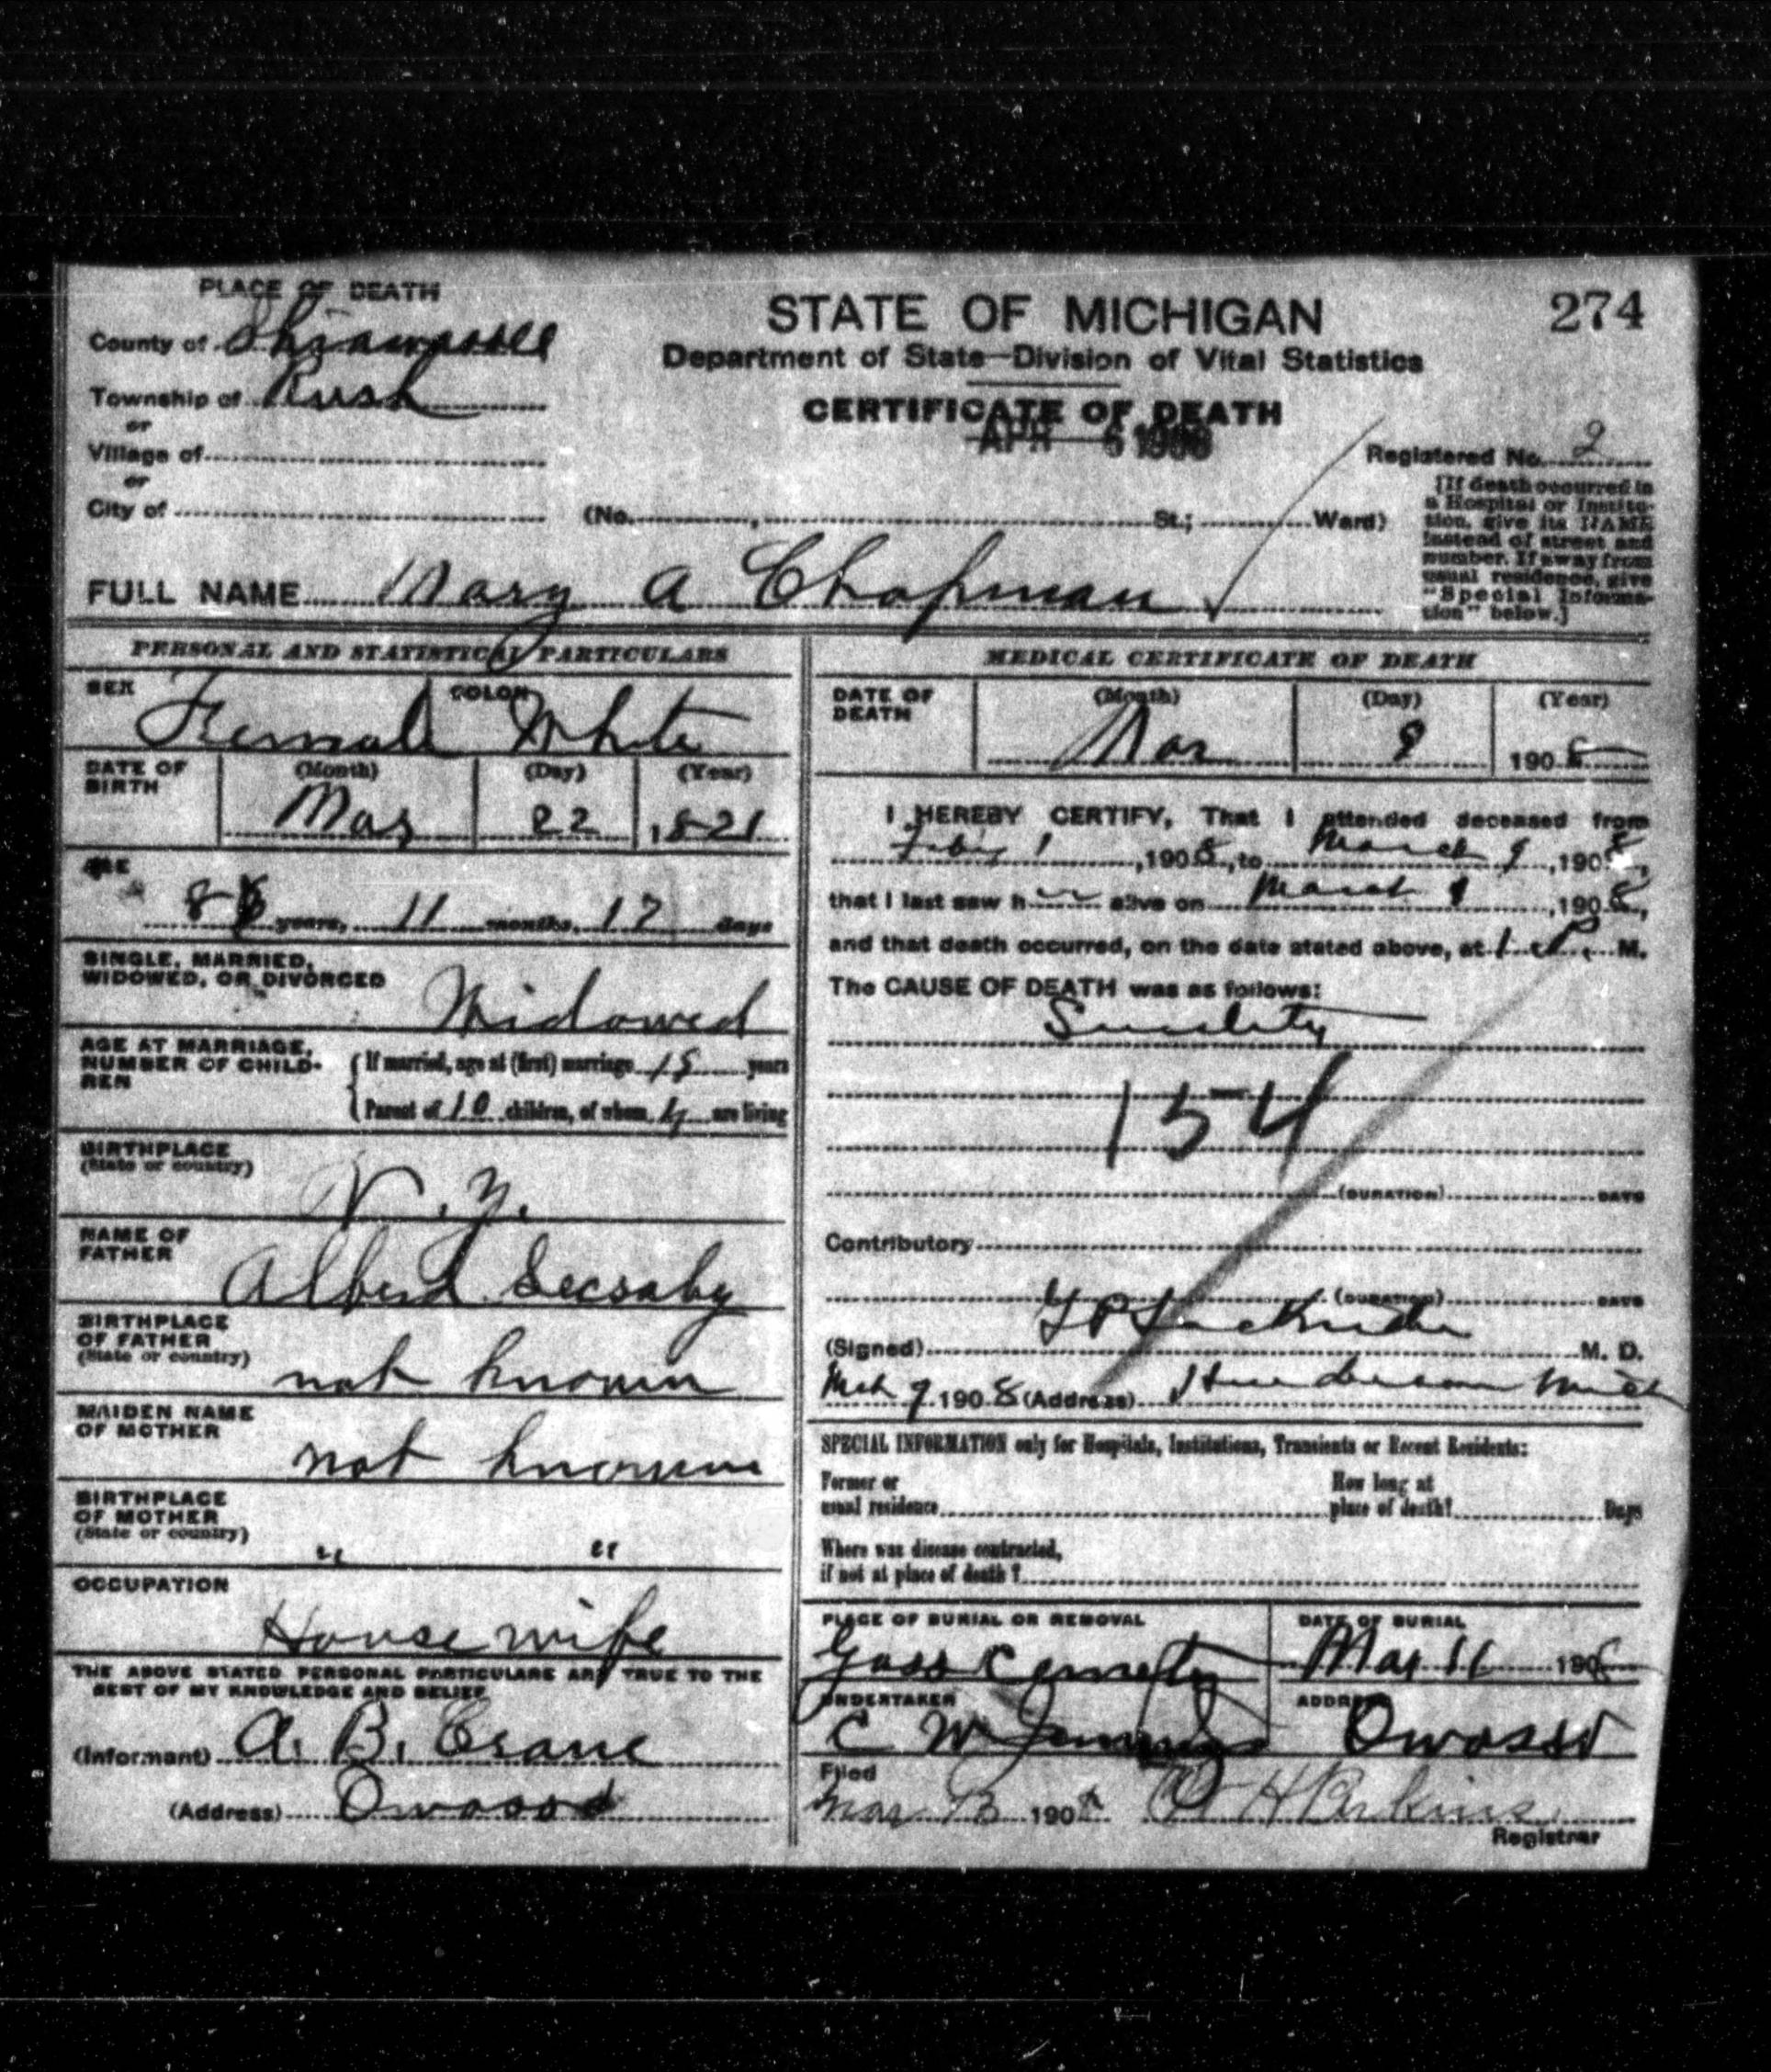 PLACE OF DEATH
County of Shiawassee
Township of Rush
or
Village of
or
City of
STATE OF MICHIGAN
Department of State—Division of Vital Statistics
CERTIFICATE OF DEATH
274
APR 6 1908
Registered No. 2
(No. , St.; Ward)
[If death occurred in
a Hospital or Institu-
tion, give its NAME
instead of street and
number. If away from
usual residence, give
"Special Informa-
tion" below.]
FULL NAME Mary A Chapman
PERSONAL AND STATISTICAL PARTICULARS
SEX Female COLOR White
DATE OF BIRTH (Month) Mar (Day) 22 (Year) 1821
AGE
years, 11 months, 17 days
SINGLE, MARRIED,
WIDOWED, OR DIVORCED Widowed
AGE AT MARRIAGE,
NUMBER OF CHILD-
REN
If married, age at (first) marriage years
Parent of 10 children, of whom 4 are living
BIRTHPLACE
(State or country) N.Y.
NAME OF
FATHER Albert
BIRTHPLACE
OF FATHER
(State or country) not known
MAIDEN NAME
OF MOTHER not known
BIRTHPLACE
OF MOTHER
(State or country) " "
OCCUPATION
Housewife
THE ABOVE STATED PERSONAL PARTICULARS ARE TRUE TO THE
BEST OF MY KNOWLEDGE AND BELIEF
(Informant) A. B. Crane
(Address) Owosso
MEDICAL CERTIFICATE OF DEATH
DATE OF DEATH (Month) Mar (Day) 9 (Year) 1908
I HEREBY CERTIFY, That I attended deceased from
1, 1908, to March 9, 1908,
that I last saw h alive on March 9, 1908,
and that death occurred, on the date stated above, at 1 P. M.
The CAUSE OF DEATH was as follows:
Senility
154
(DURATION) DAYS
Contributory
(DURATION) DAYS
(Signed) M. D.
Mch 9 1908 (Address) Henderson Mich
SPECIAL INFORMATION only for Hospitals, Institutions, Transients or Recent Residents:
Former or
usual residence
How long at
place of death? Days
Where was disease contracted,
if not at place of death?
PLACE OF BURIAL OR REMOVAL
Cemetery
DATE OF BURIAL
Mar 11 1908
UNDERTAKER
C W Jennings
ADDRESS
Owosso
Filed
Mar 13 1908 H Perkins
Registrar